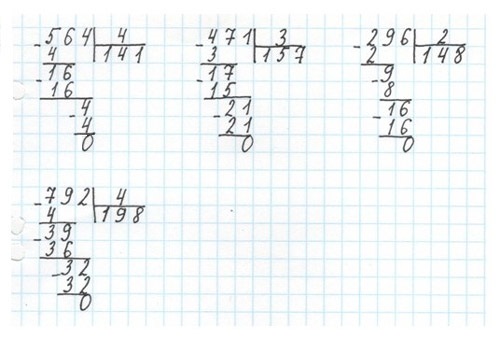 -564 | 4
4 | 141
-16
16
-4
4
0
-471 | 3
3 | 157
-17
15
-21
21
0
-296 | 2
2 | 148
-9
8
-16
16
0
-792 | 4
4 | 198
-39
36
-32
32
0